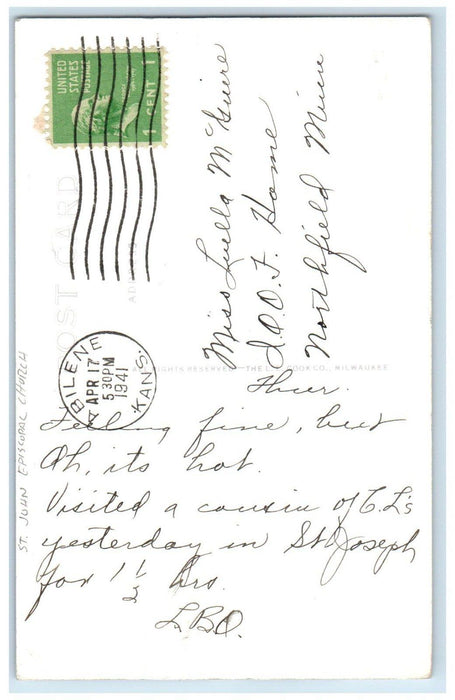 UNITED
STATES
POSTAGE
1 CENT 1
POST CARD
Miss Luella McGuire
I.O.O.F. Home
Northfield Minn
ABILENE
APR 17
5 30 PM
1941
KANS.
ALL RIGHTS RESERVED — THE L. L. COOK CO., MILWAUKEE
Thur.
Feeling fine, but
Oh, its hot.
Visited a cousin of C.L's
yesterday in St. Joseph
for 1 1/2 hrs.
L.B.O.
ST. JOHN EPISCOPAL CHURCH